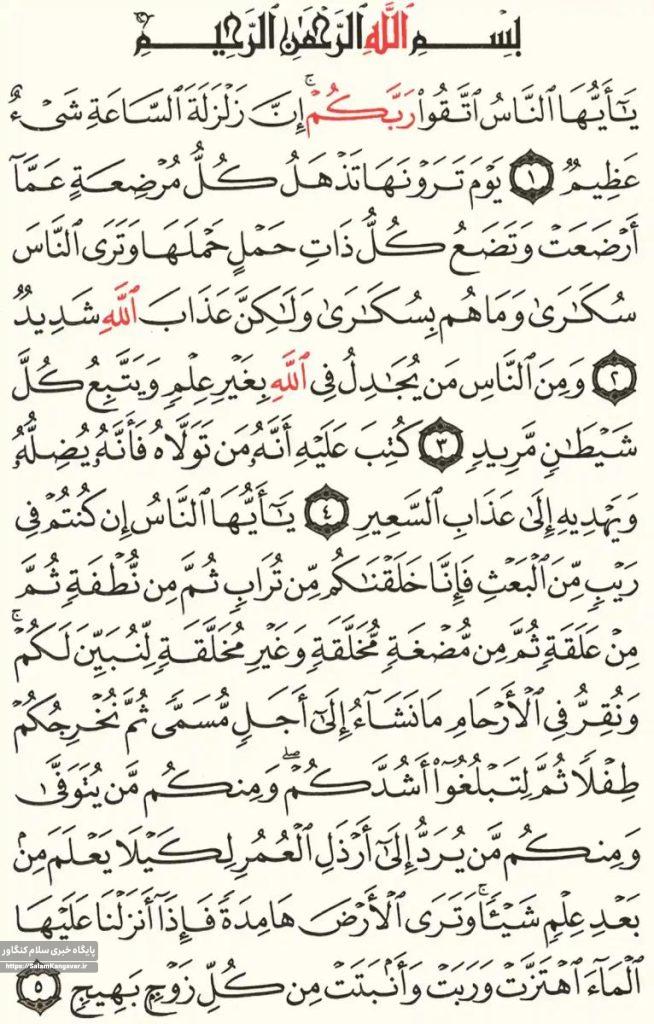 بِسْمِ ٱللَّهِ ٱلرَّحْمَٰنِ ٱلرَّحِيمِ
يَٰٓأَيُّهَا ٱلنَّاسُ ٱتَّقُوا۟ رَبَّكُمْ ۚ إِنَّ زَلْزَلَةَ ٱلسَّاعَةِ شَىْءٌ
عَظِيمٌ ١ يَوْمَ تَرَوْنَهَا تَذْهَلُ كُلُّ مُرْضِعَةٍ عَمَّآ
أَرْضَعَتْ وَتَضَعُ كُلُّ ذَاتِ حَمْلٍ حَمْلَهَا وَتَرَى ٱلنَّاسَ
سُكَٰرَىٰ وَمَا هُم بِسُكَٰرَىٰ وَلَٰكِنَّ عَذَابَ ٱللَّهِ شَدِيدٌ
٢ وَمِنَ ٱلنَّاسِ مَن يُجَٰدِلُ فِى ٱللَّهِ بِغَيْرِ عِلْمٍ وَيَتَّبِعُ كُلَّ
شَيْطَٰنٍ مَّرِيدٍ ٣ كُتِبَ عَلَيْهِ أَنَّهُۥ مَن تَوَلَّاهُ فَأَنَّهُۥ يُضِلُّهُۥ
وَيَهْدِيهِ إِلَىٰ عَذَابِ ٱلسَّعِيرِ ٤ يَٰٓأَيُّهَا ٱلنَّاسُ إِن كُنتُمْ فِى
رَيْبٍ مِّنَ ٱلْبَعْثِ فَإِنَّا خَلَقْنَٰكُم مِّن تُرَابٍ ثُمَّ مِن نُّطْفَةٍ ثُمَّ
مِنْ عَلَقَةٍ ثُمَّ مِن مُّضْغَةٍ مُّخَلَّقَةٍ وَغَيْرِ مُخَلَّقَةٍ لِّنُبَيِّنَ لَكُمْ ۚ
وَنُقِرُّ فِى ٱلْأَرْحَامِ مَا نَشَآءُ إِلَىٰٓ أَجَلٍ مُّسَمًّى ثُمَّ نُخْرِجُكُمْ
طِفْلًا ثُمَّ لِتَبْلُغُوٓا۟ أَشُدَّكُمْ ۖ وَمِنكُم مَّن يُتَوَفَّىٰ
وَمِنكُم مَّن يُرَدُّ إِلَىٰٓ أَرْذَلِ ٱلْعُمُرِ لِكَيْلَا يَعْلَمَ مِنۢ
بَعْدِ عِلْمٍ شَيْـًٔا ۚ وَتَرَى ٱلْأَرْضَ هَامِدَةً فَإِذَآ أَنزَلْنَا عَلَيْهَا
ٱلْمَآءَ ٱهْتَزَّتْ وَرَبَتْ وَأَنۢبَتَتْ مِن كُلِّ زَوْجٍۭ بَهِيجٍ ٥
پایگاه خبری سلام کنگاور
https://SalamKangavar.ir